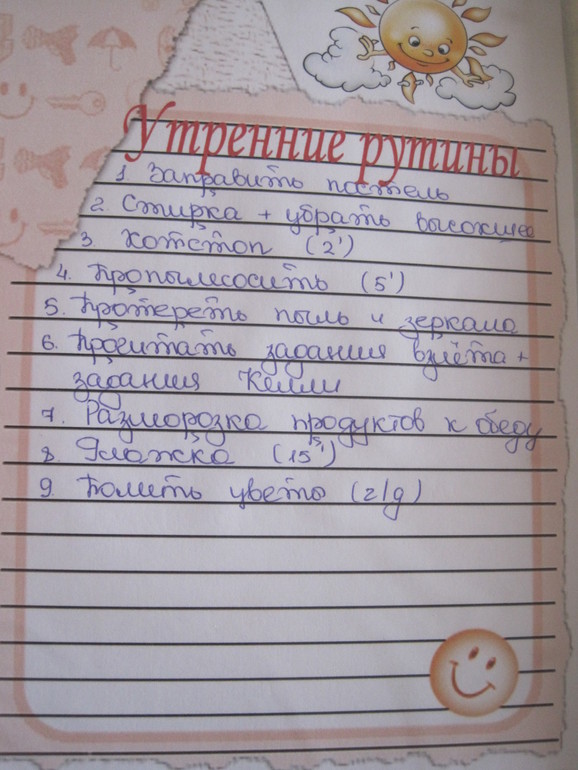 Утренние рутины
1. Заправить пастель
2. Стирка + убрать высохшее
3. Хотстоп (2')
4. Пропылесосить (5')
5. Протереть пыль и зеркала
6. Прочитать задания взлёта +
задания Келли
7. Разморозка продуктов к обеду
8. Глажка (15')
9. Полить цветы (2/д)